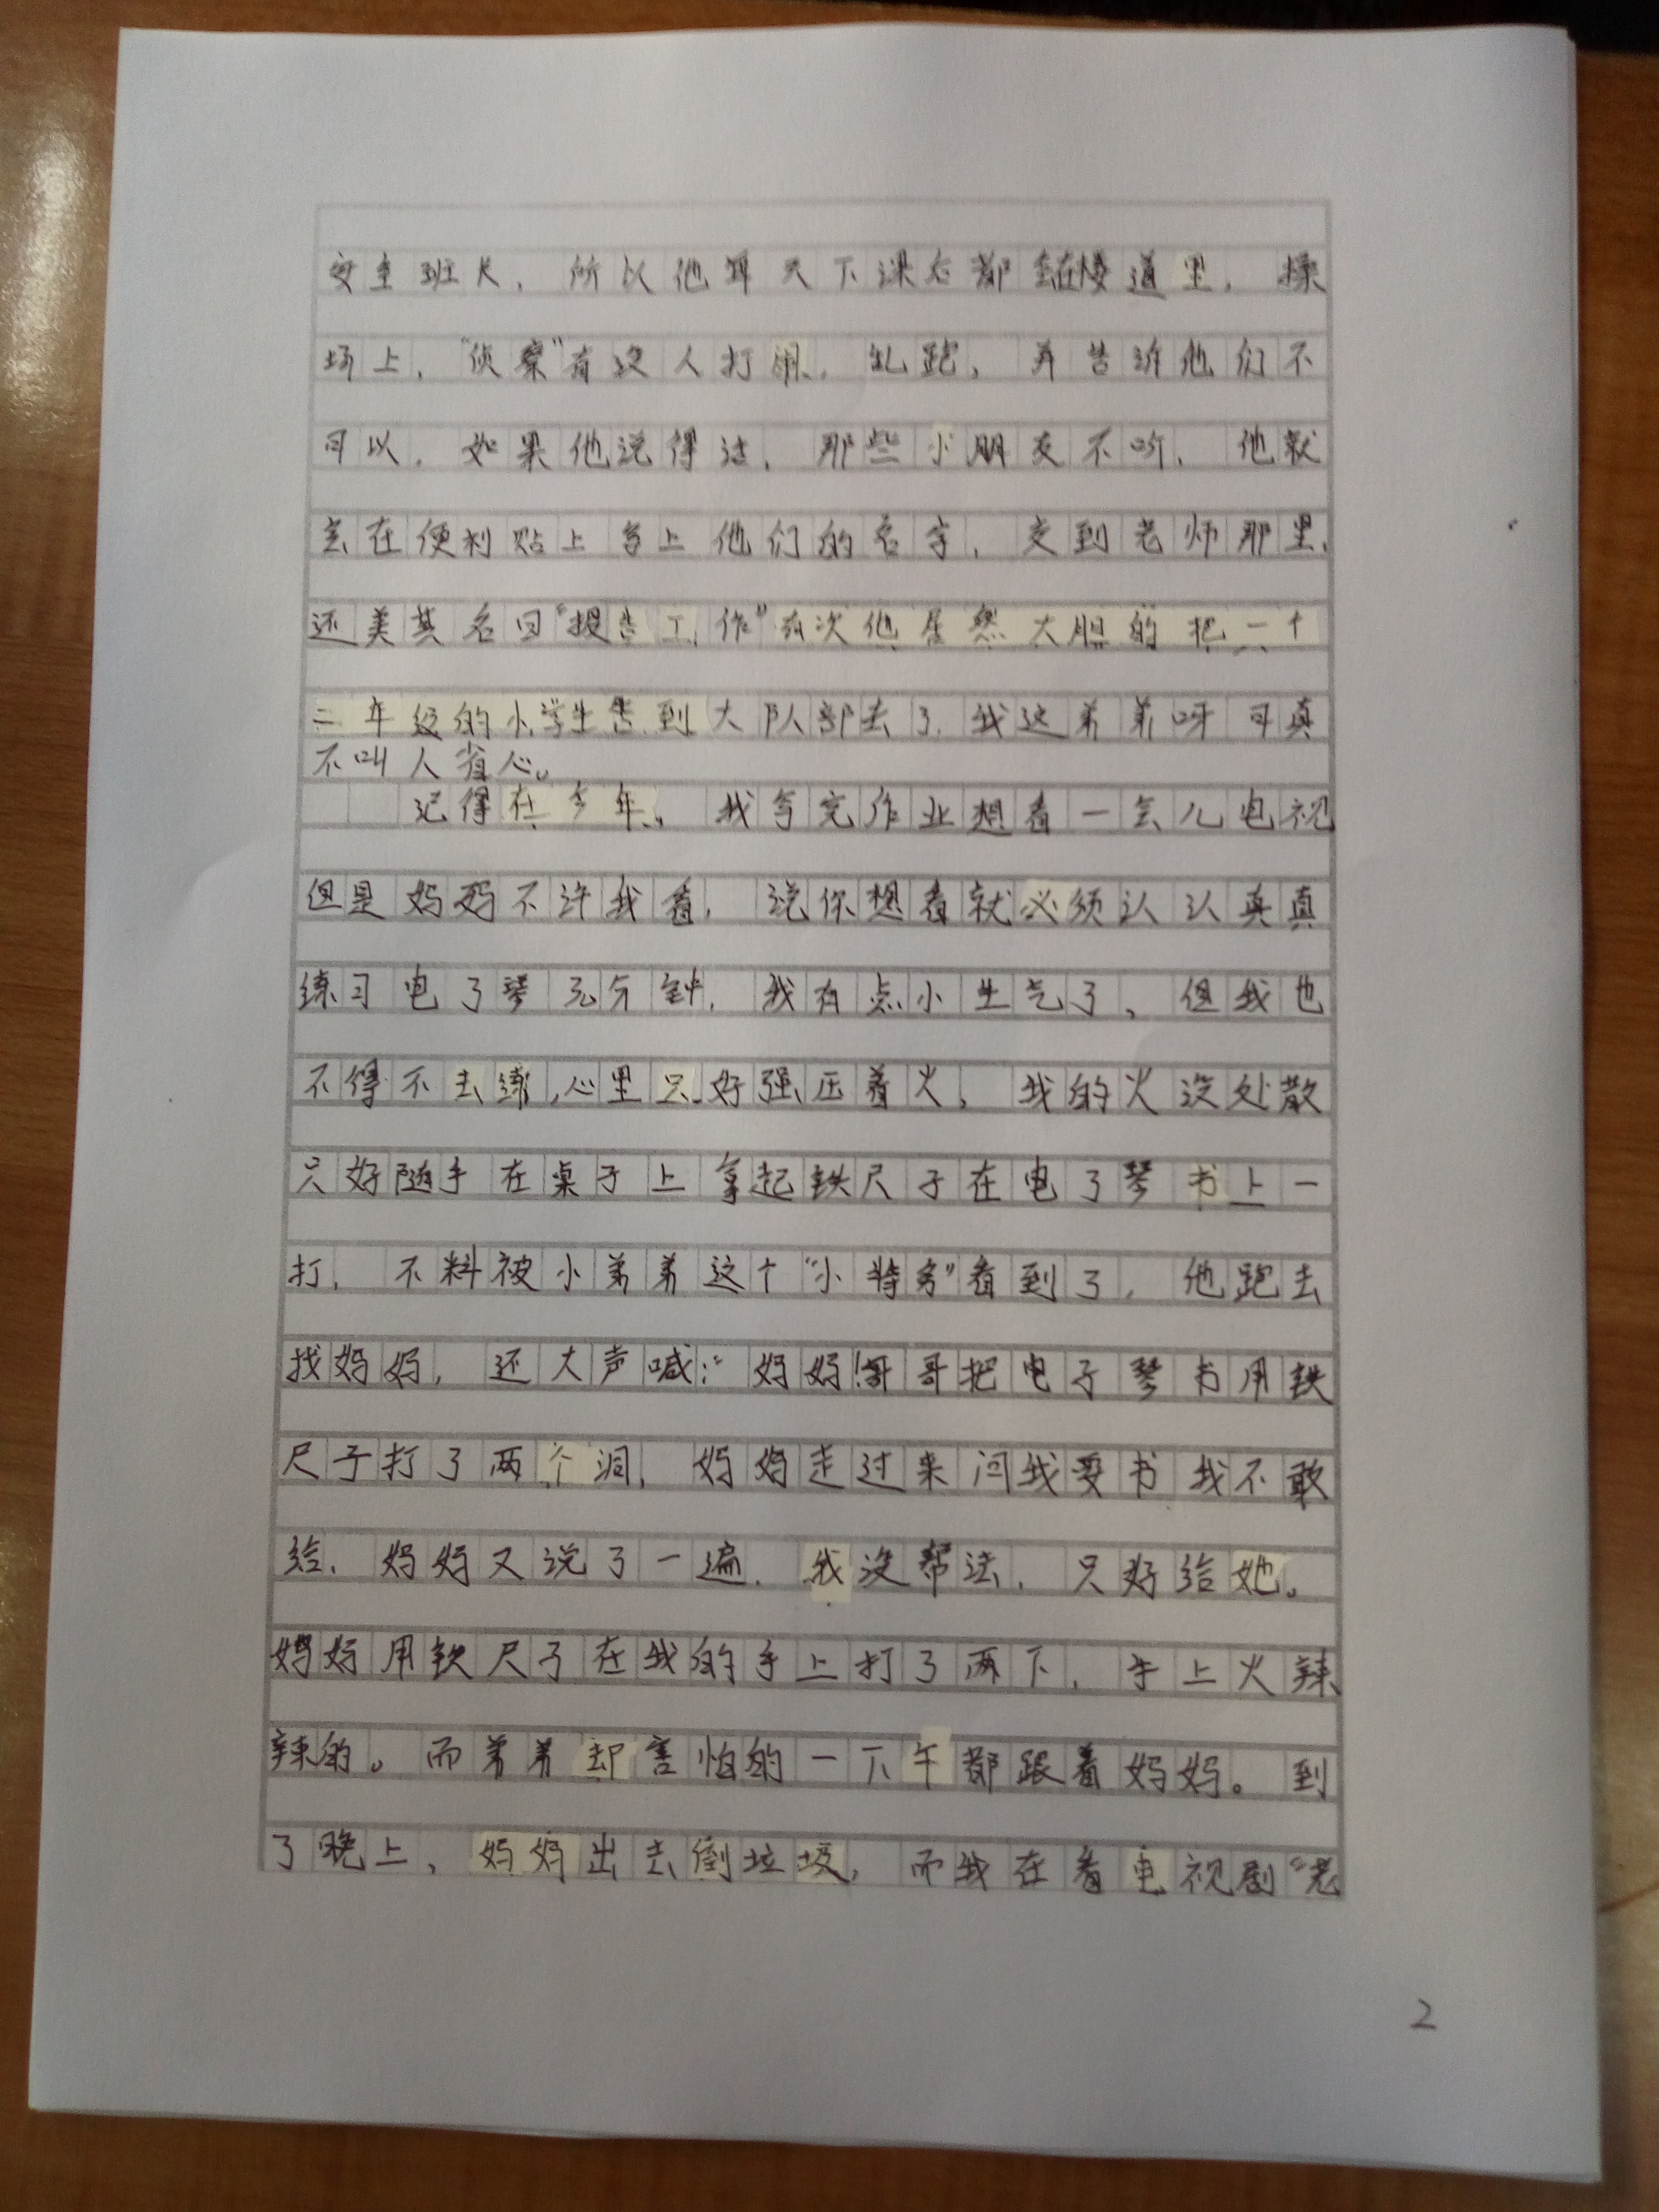 安全班长，所以他每天下课后都会在楼道里，操
场上，“侦察”有没人打闹，乱跑，并告诉他们不
可以，如果他说得过，那些小朋友不听，他就
会在便利贴上写上他们的名字，交到老师那里，
还美其名曰“报告工作”有次他居然大胆的把一个
二年级的小学生告到大队部去了，我这弟弟呀可真
不叫人省心。
记得在今年，我写完作业想看一会儿电视
但是妈妈不许我看，说你想看就必须认认真真
练习电子琴 分钟，我有点小生气了，但我也
不得不去练，心里只好强压着火，我的火没处散
只好随手在桌子上拿起铁尺子在电子琴书上一
打，不料被小弟弟这个“小特务”看到了，他跑去
找妈妈，还大声喊：“妈妈！哥哥把电子琴书用铁
尺子打了两个洞，妈妈走过来问我要书我不敢
给，妈妈又说了一遍，我没帮法，只好给她。
妈妈用铁尺子在我的手上打了两下，手上火辣
辣的。而弟弟却害怕的一下午都跟着妈妈。到
了晚上，妈妈出去倒垃圾，而我在看电视剧“老
2